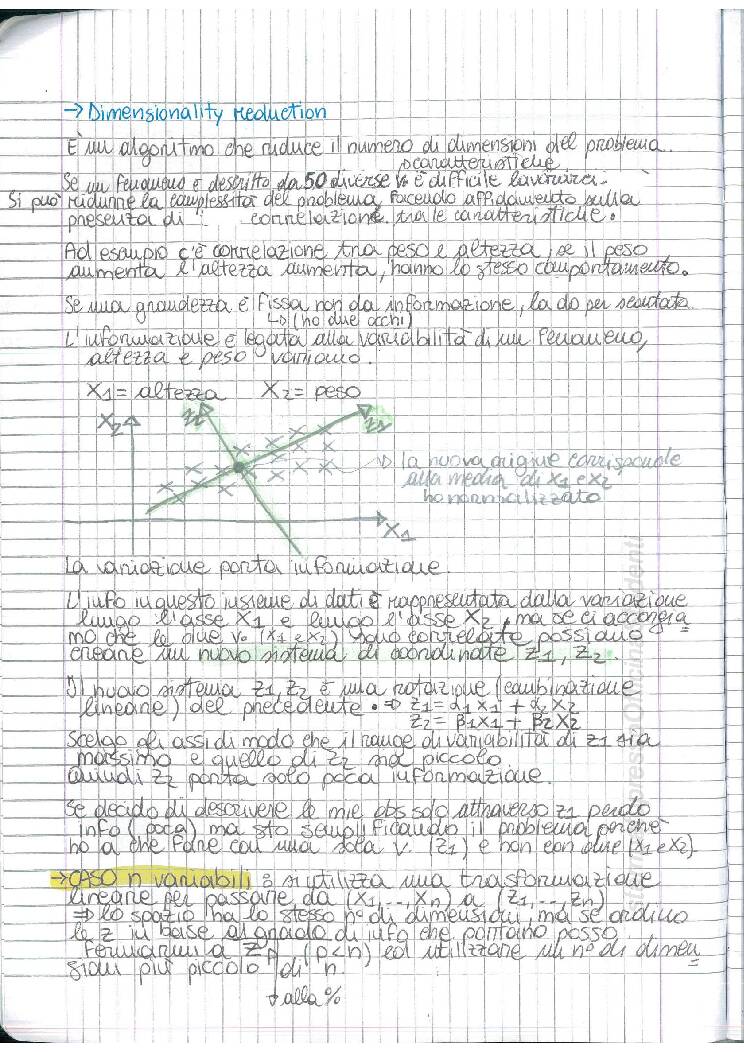 → Dimensionality reduction
È un algoritmo che riduce il numero di dimensioni del problema.
caratteristiche
Se un fenomeno è descritto da 50 diverse v. è difficile lavorarci.
Si può ridurre la complessità del problema facendo affidamento sulla
presenza di : correlazione tra le caratteristiche.
Ad esempio c'è correlazione tra peso e altezza, se il peso
aumenta l'altezza aumenta, hanno lo stesso comportamento.
Se una grandezza è fissa non da informazione, la do per scontata.
↳ (ho due occhi)
L'informazione è legata alla variabilità di un fenomeno,
altezza e peso variano.
X1 = altezza X2 = peso
X2
z2
z1
→ la nuova origine corrisponde
alla media di x1 e x2,
ho normalizzato
X1
La variazione porta informazione.
L'info in questo insieme di dati è rappresentata dalla variazione
lungo l'asse X1 e lungo l'asse X2, ma se ci accorgia
mo che le due v. (x1 e x2) sono correlate possiamo
creare un nuovo sistema di coordinate z1, z2.
Il nuovo sistema z1, z2 è una rotazione (combinazione
lineare) del precedente. ⇒ z1 = α1 x1 + α2 x2
z2 = β1 x1 + β2 x2
Scelgo gli assi di modo che il range di variabilità di z1 sia
massimo e quello di z2 sia piccolo.
Quindi z2 porta solo poca informazione.
Se decido di descrivere le mie obs solo attraverso z1 perdo
info (poca) ma sto semplificando il problema perché
ho a che fare con una sola v. (z1) e non con due (x1 e x2).
→ CASO n variabili : si utilizza una trasformazione
lineare per passare da (x1,..,xn) a (z1,..,zn)
⇒ lo spazio ha lo stesso n° di dimensioni, ma se ordino
le z in base al grado di info che portano posso
fermarmi a zp (p<n) ed utilizzare un n° di dimen
sioni più piccolo di n
↓ alla %